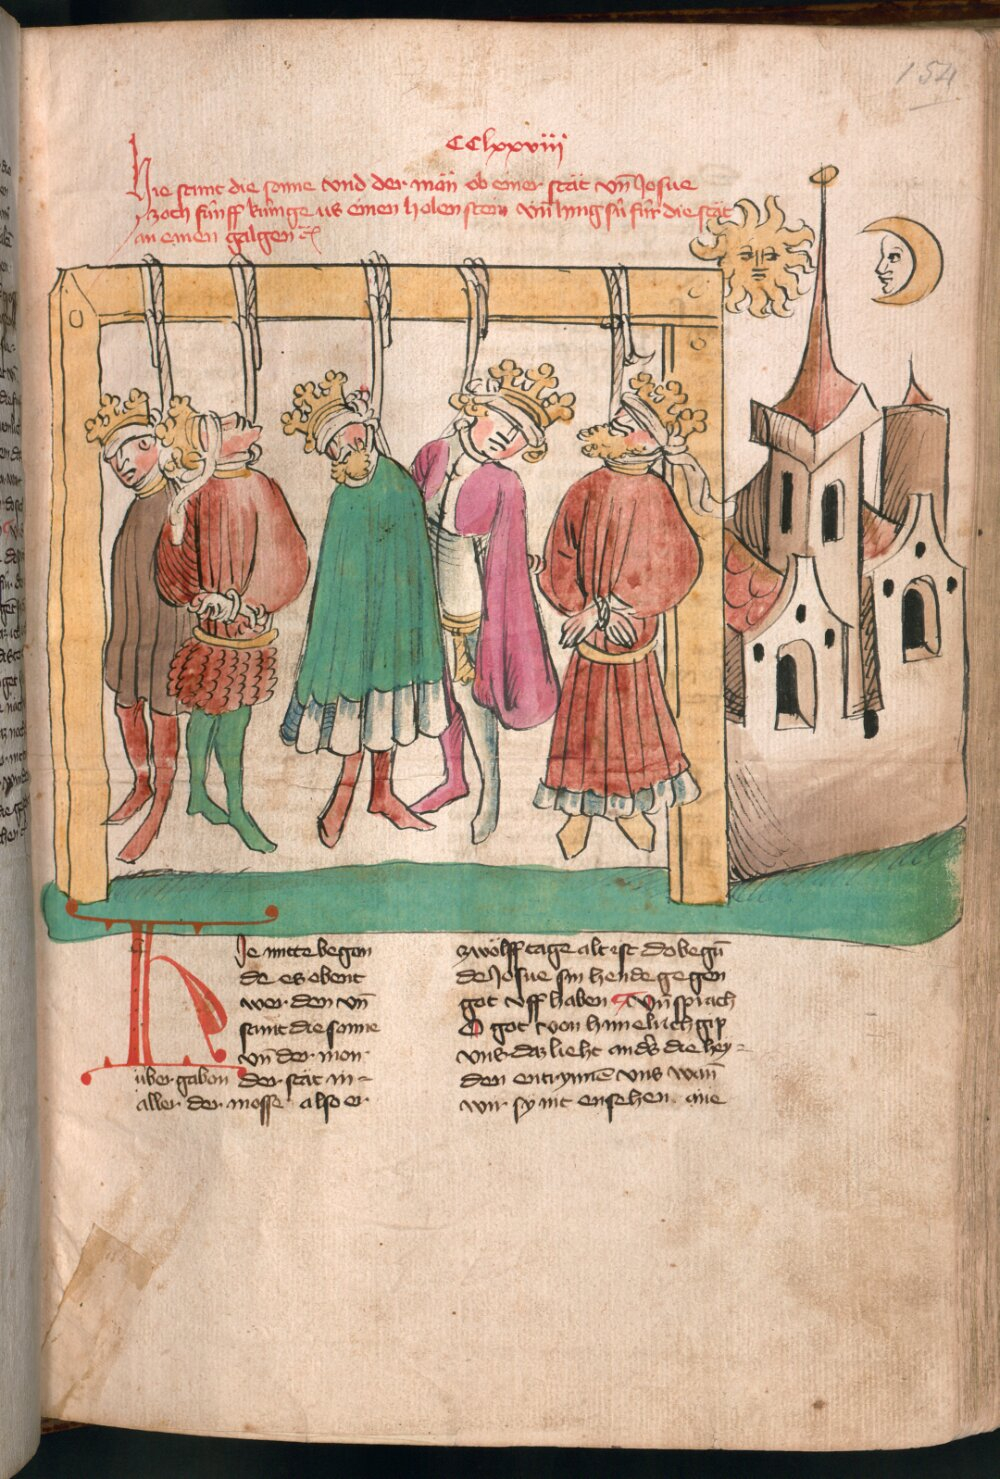 154
CClxxviii
Hie stunt die sonne vnd der man ob einer stat vn̄ Josue
zoch fúnff kúnige vs einen holen stein vn̄ hing sú fúr die stat
an einen galgen
Je mitte begon
de es obent
wer den vn̄
stunt die sonne
vn̄ der mon
über gabon der stat in
aller der mosse also er
zwölff tage alt ist do begū
de Josue sin hende gegen
got vff haben Vn̄ sprach
O got von himelrich gip
vns daz lieht anders die hey-
den entrynnē vns wan̄
wir sÿ nit ensehen ane